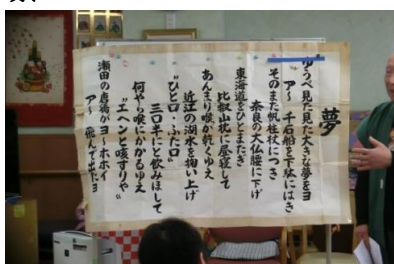 夢
ゆうべ見た見た大きな夢をヨ
ア〜 千石船を下駄にはき
そのまた帆柱杖につき
奈良の大仏腰に下げ
東海道をひとまたぎ
比叡山枕に昼寝して
あんまり喉が乾くゆえ
近江の湖水を掬い上げ
"ひと口・ふた口"
三口半にと飲みほして
何やら喉にかかるゆえ
"エヘンと咳すりゃ"
瀬田の唐橋がヨ〜ホホイ
ア〜 飛んで出たヨ